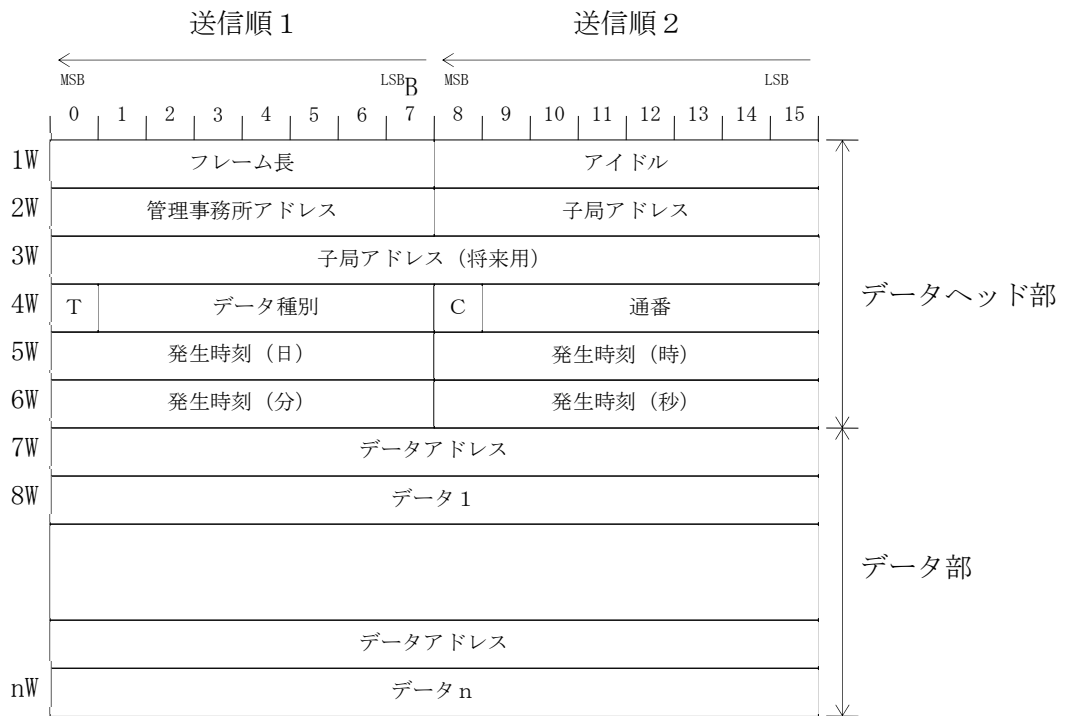 送信順１ 送信順２
MSB LSBB MSB LSB
0 1 2 3 4 5 6 7 8 9 10 11 12 13 14 15
1W フレーム長 アイドル
2W 管理事務所アドレス 子局アドレス
3W 子局アドレス（将来用）
4W T データ種別 C 通番
データヘッド部
5W 発生時刻（日） 発生時刻（時）
6W 発生時刻（分） 発生時刻（秒）
7W データアドレス
8W データ１
データ部
データアドレス
nW データｎ